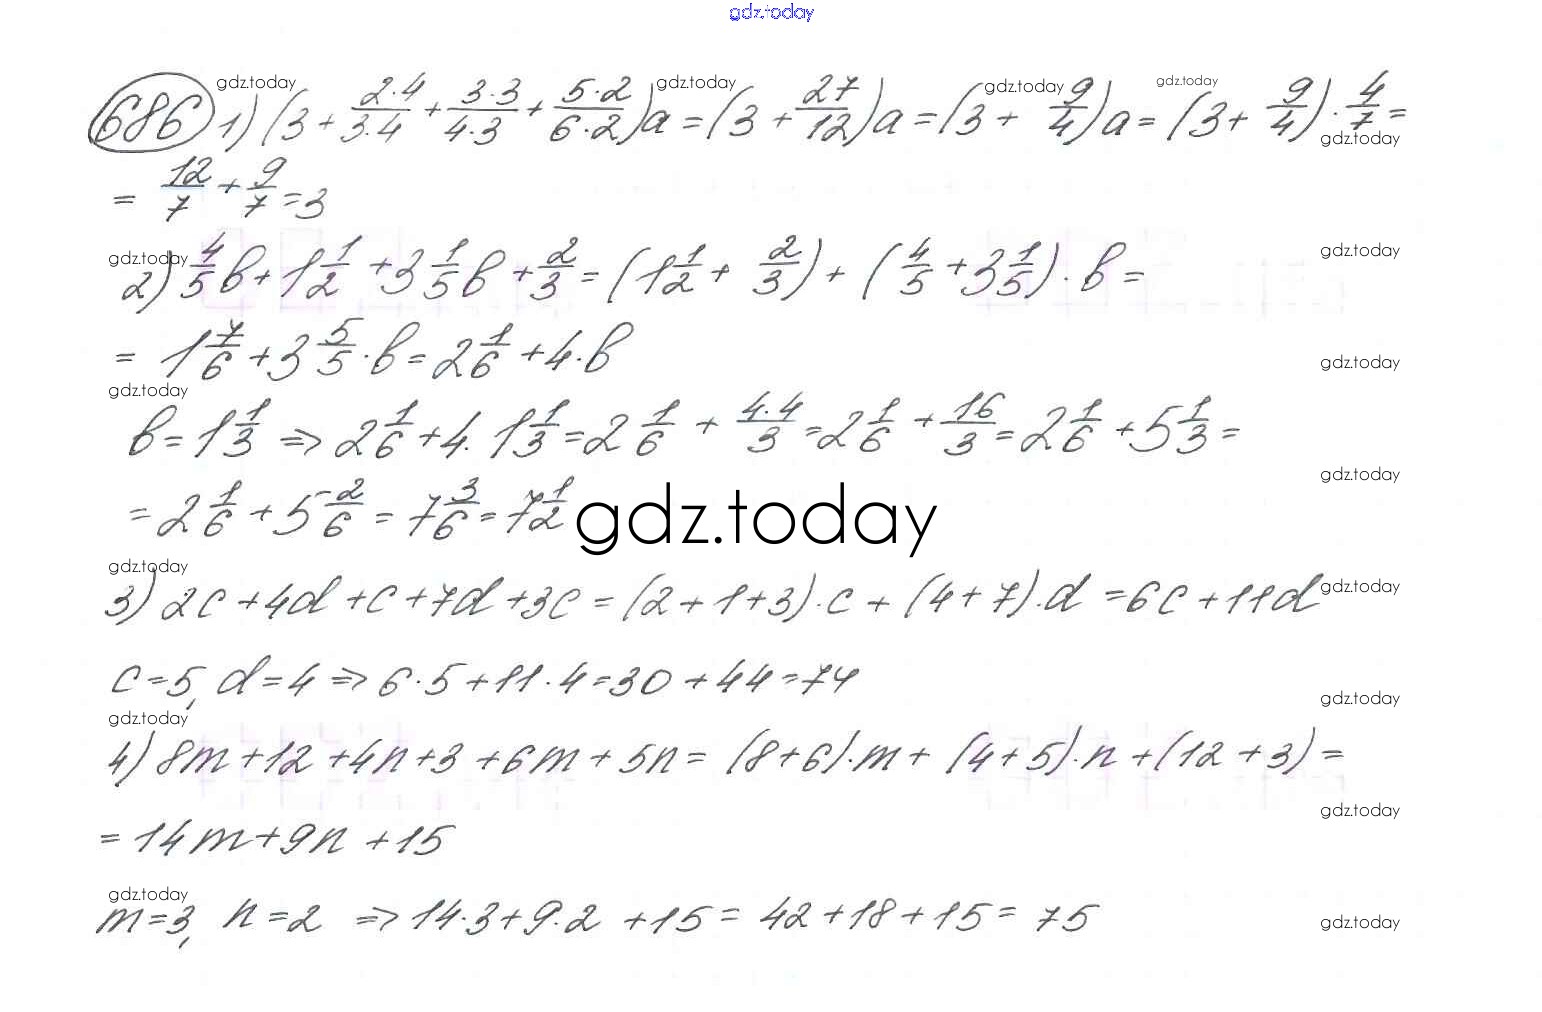 gdz.today
686 1) (3 + 2·4/3·4 + 3·3/4·3 + 5·2/6·2)a = (3 + 27/12)a = (3 + 9/4)a = (3 + 9/4) · 4/7 =
= 12/7 + 9/7 = 3
2) 4/5 b + 1 1/2 + 3 1/5 b + 2/3 = (1 1/2 + 2/3) + (4/5 + 3 1/5) · b =
= 1 7/6 + 3 5/5 · b = 2 1/6 + 4 · b
b = 1 1/3 ⇒ 2 1/6 + 4 · 1 1/3 = 2 1/6 + 4·4/3 = 2 1/6 + 16/3 = 2 1/6 + 5 1/3 =
= 2 1/6 + 5 2/6 = 7 3/6 = 7 1/2
gdz.today
3) 2c + 4d + c + 7d + 3c = (2 + 1 + 3) · c + (4 + 7) · d = 6c + 11d
c = 5, d = 4 ⇒ 6 · 5 + 11 · 4 = 30 + 44 = 74
4) 8m + 12 + 4n + 3 + 6m + 5n = (8 + 6) · m + (4 + 5) · n + (12 + 3) =
= 14m + 9n + 15
m = 3, n = 2 ⇒ 14 · 3 + 9 · 2 + 15 = 42 + 18 + 15 = 75